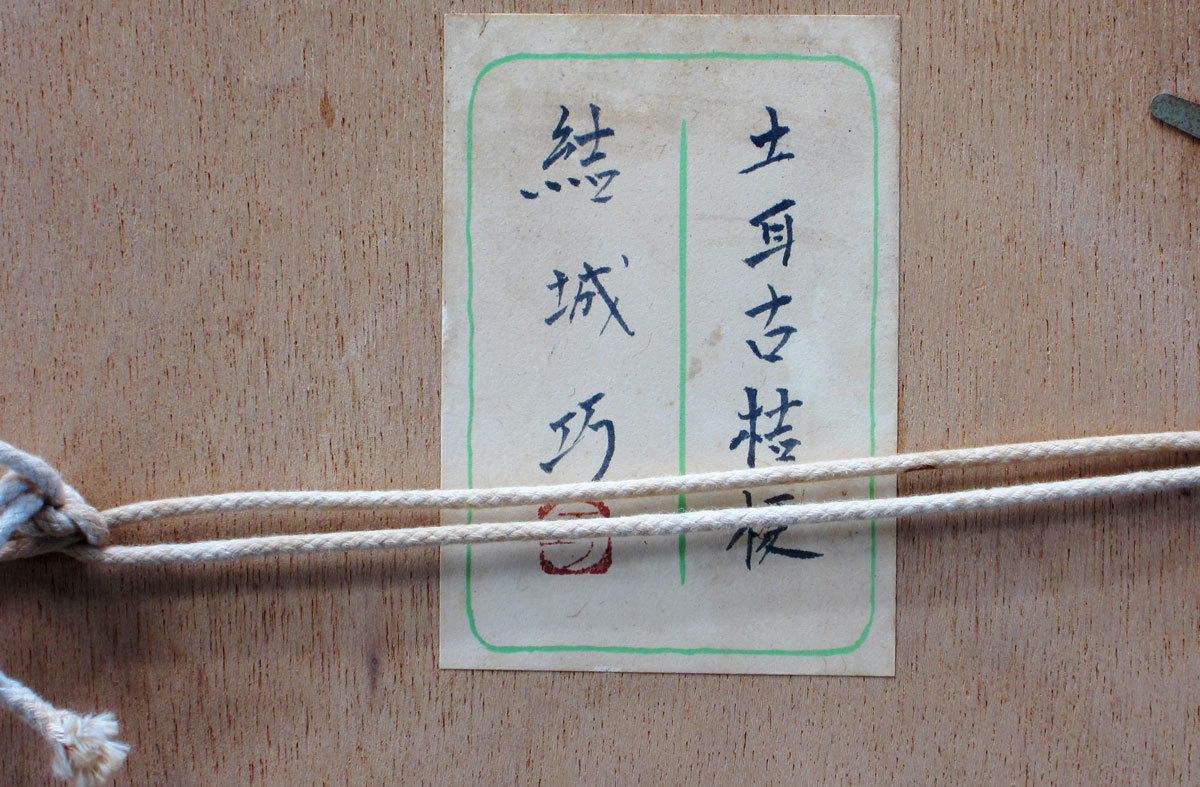 土耳古桔梗
結城巧